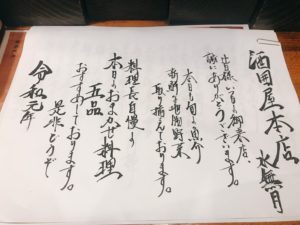 酒田屋本店
水無月
皆様いつも御来店
誠にありがとうございます。
本日も旬の魚介
新鮮な地場野菜
取り揃えております。
料理長自慢の
本日のおまかせ料理
五品
おすすめしております。
是非どうぞ
令和元年